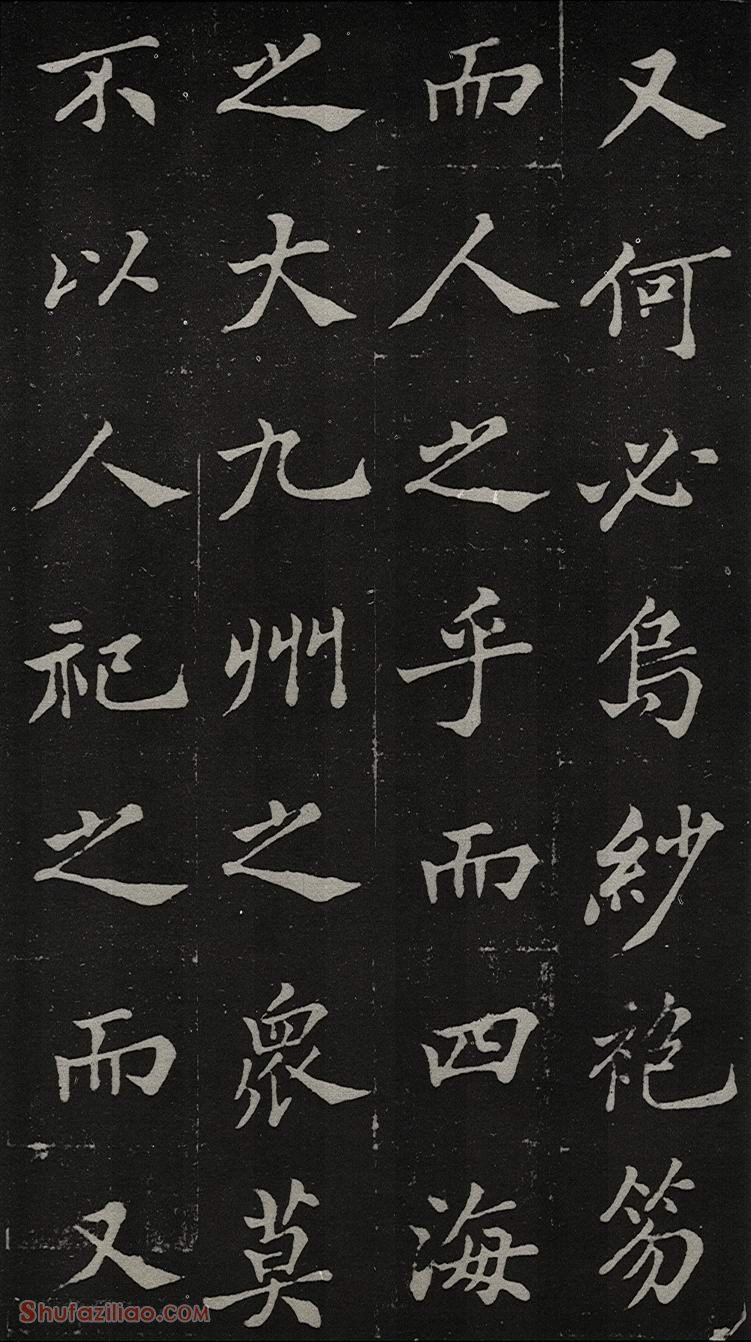 又何必烏紗袍笏
而人之乎而四海
之大九州之眾莫
不以人祀之而又
Shufaziliao.com